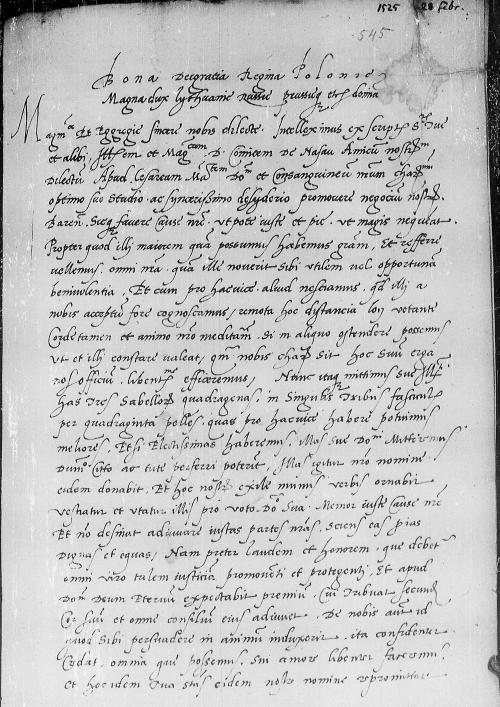 1525 28 Febr.
545
Bona Dei gratia Regina Polonie,
Magna dux lythuanie russie prussieq etc domina
Et Egregie sincere nobis dilecte. Intelleximus ex script Due
et alibi, et Mag D. Comitem De Nasau Amicu nostr
Dilectu Apud Cesaream Ma Do et Consanguineu nrum char
optimo suo studio ac syncerissimo desyderio promovere negociu nostr
Baren favere cause nre. ut pote iuste et pie. ut magis nequeat.
Propter quod illi maiorem qua possumus habemus gram, Et refferre
vellemus. omni nra. qua ille noverit sibi utilem vel opportuna
benivolentia, Et cum pro hac vice. aliud nesciamus. qd illi a
nobis acceptu fore cognoscamus, remota hoc distancia
et animo nro Si in aliquo ostendere possemus
ut et illi constare valeat, nobis char sit hoc suu erga
nos officiu. libent efficeremus, Nunc itaq mittimus
has Tres Sabellor quadragenas, in singulis Tribus fascicul
per quadraginta pelles. quas pro hac vice habere potuimus
meliores, Etsi Electissimas haberemus, Illas sue Do Mitteremus
Dum Cito ac tute perferri poterint, Illas igitur nro nomine
eidem donabit, Et hoc nostr exile munus verbis ornabit
vestiatur et utatur illis pro voto Do Sua. Memor iuste cause nre
Et no desinat adiuvare iustas partes nras, sciens eas pias
Dignas et equas, Nam preter laudem et honorem, que debet
omni viro talem iusticia promoventi et protegenti, Et apud
Dom Deum Eternu expectabit premiu. Cui Tribuat secund
Cor suu et omne consiliu eius adiuvet. De nobis aut id
quod sibi persuadere in animu induxerit. ita confidenter
Credat, omnia que possemus. Sui amore libenter faceremus,
et hoc idem Tua eidem nostr nomine repromittat